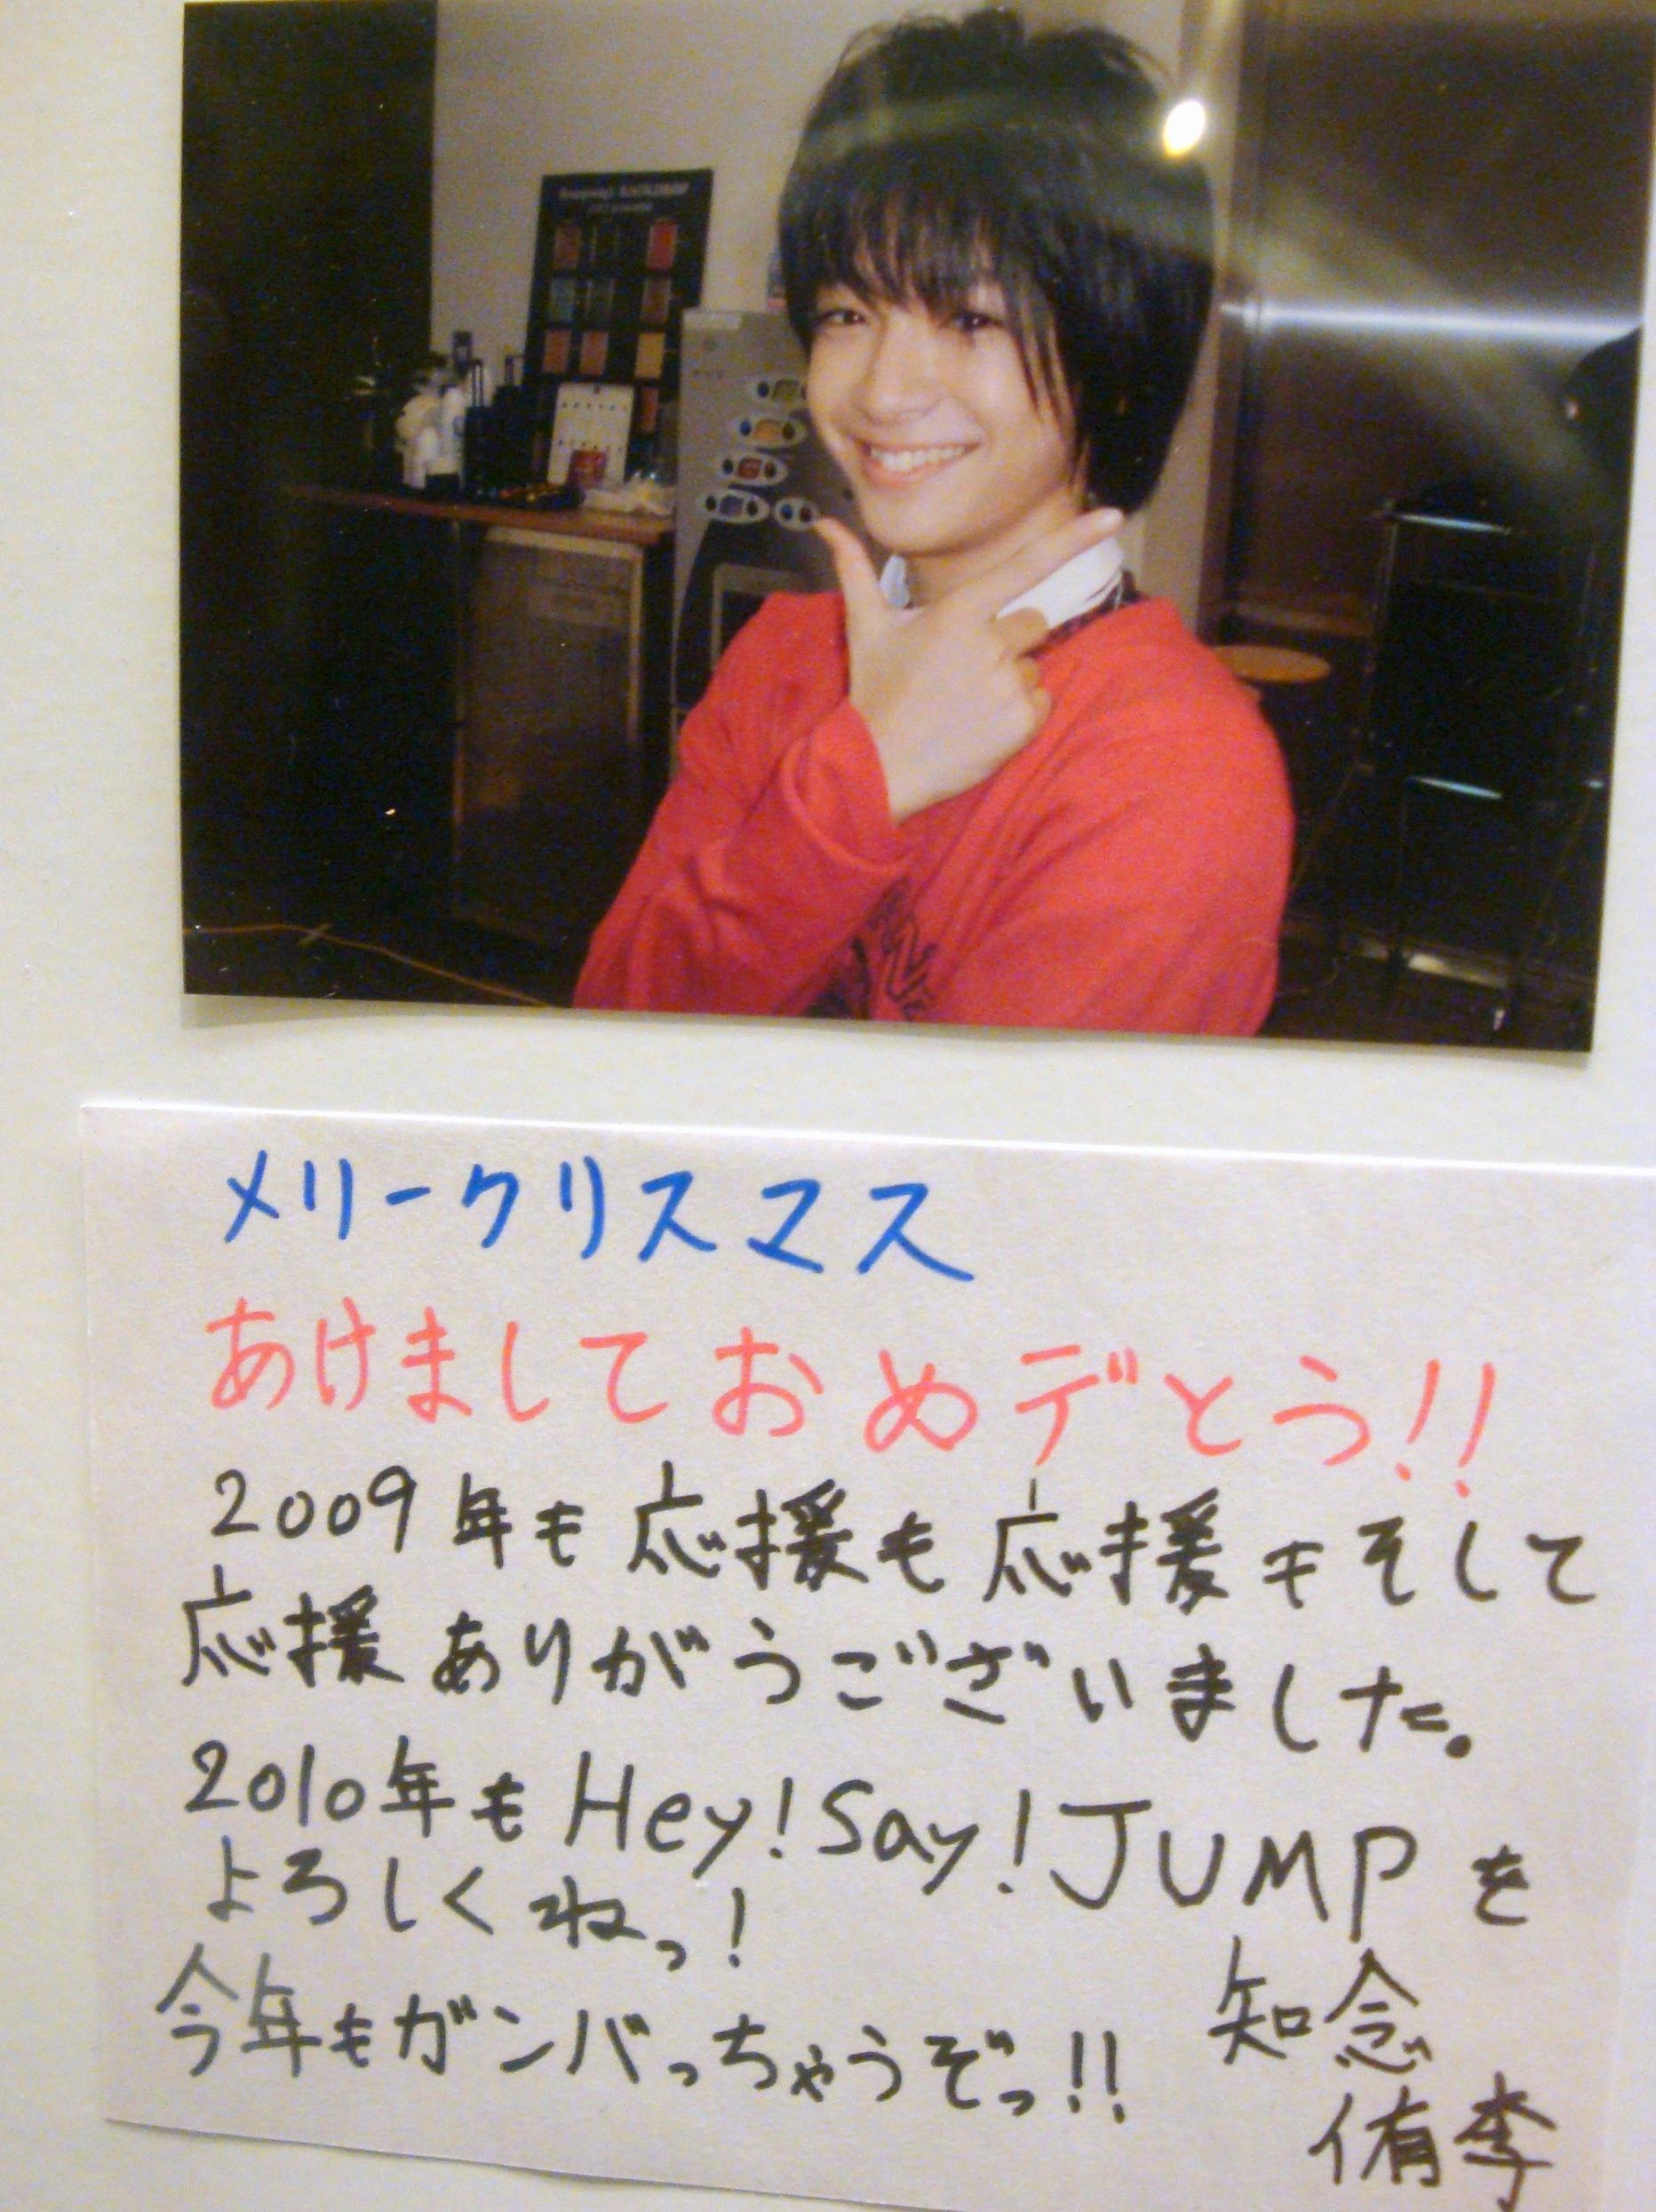 メリークリスマス
あけましておめデとう!!
2009年も応援も応援もそして
応援ありがうございました。
2010年もHey!Say!JUMPを
よろしくねっ!
今年もガンバっちゃうぞっ!!
知念
侑李